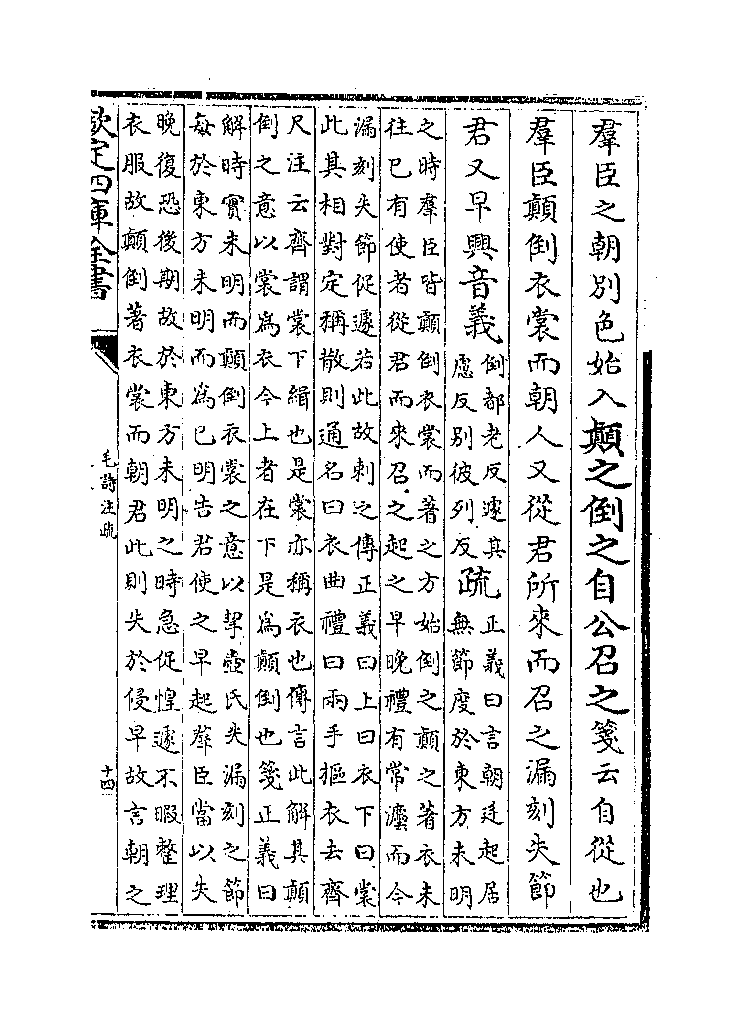 羣臣之朝別色始入顛之倒之自公召之箋云自從也
羣臣顛倒衣裳而朝人又從君所來而召之漏刻失節
君又早興音義
倒都老反遽其
慮反別彼列反
疏
正義曰言朝廷起居
無節度於東方未明
之時羣臣皆顛倒衣裳而著之方始倒之顛之著衣未
往已有使者從君而來召之起之早晚禮有常灋而今
漏刻失節促遽若此故刺之傳正義曰上曰衣下曰裳
此其相對定稱散則通名曰衣曲禮曰兩手摳衣去齊
尺注云齊謂裳下緝也是裳亦稱衣也傳言此解其顛
倒之意以裳為衣今上者在下是為顛倒也箋正義曰
解時實未明而顛倒衣裳之意以挈壺氏失漏刻之節
每於東方未明而為已明告君使之早起羣臣當以失
晚復恐後期故於東方未明之時急促惶遽不暇整理
衣服故顛倒著衣裳而朝君此則失於侵早故言朝之
欽定四庫全書
毛詩注疏
十四